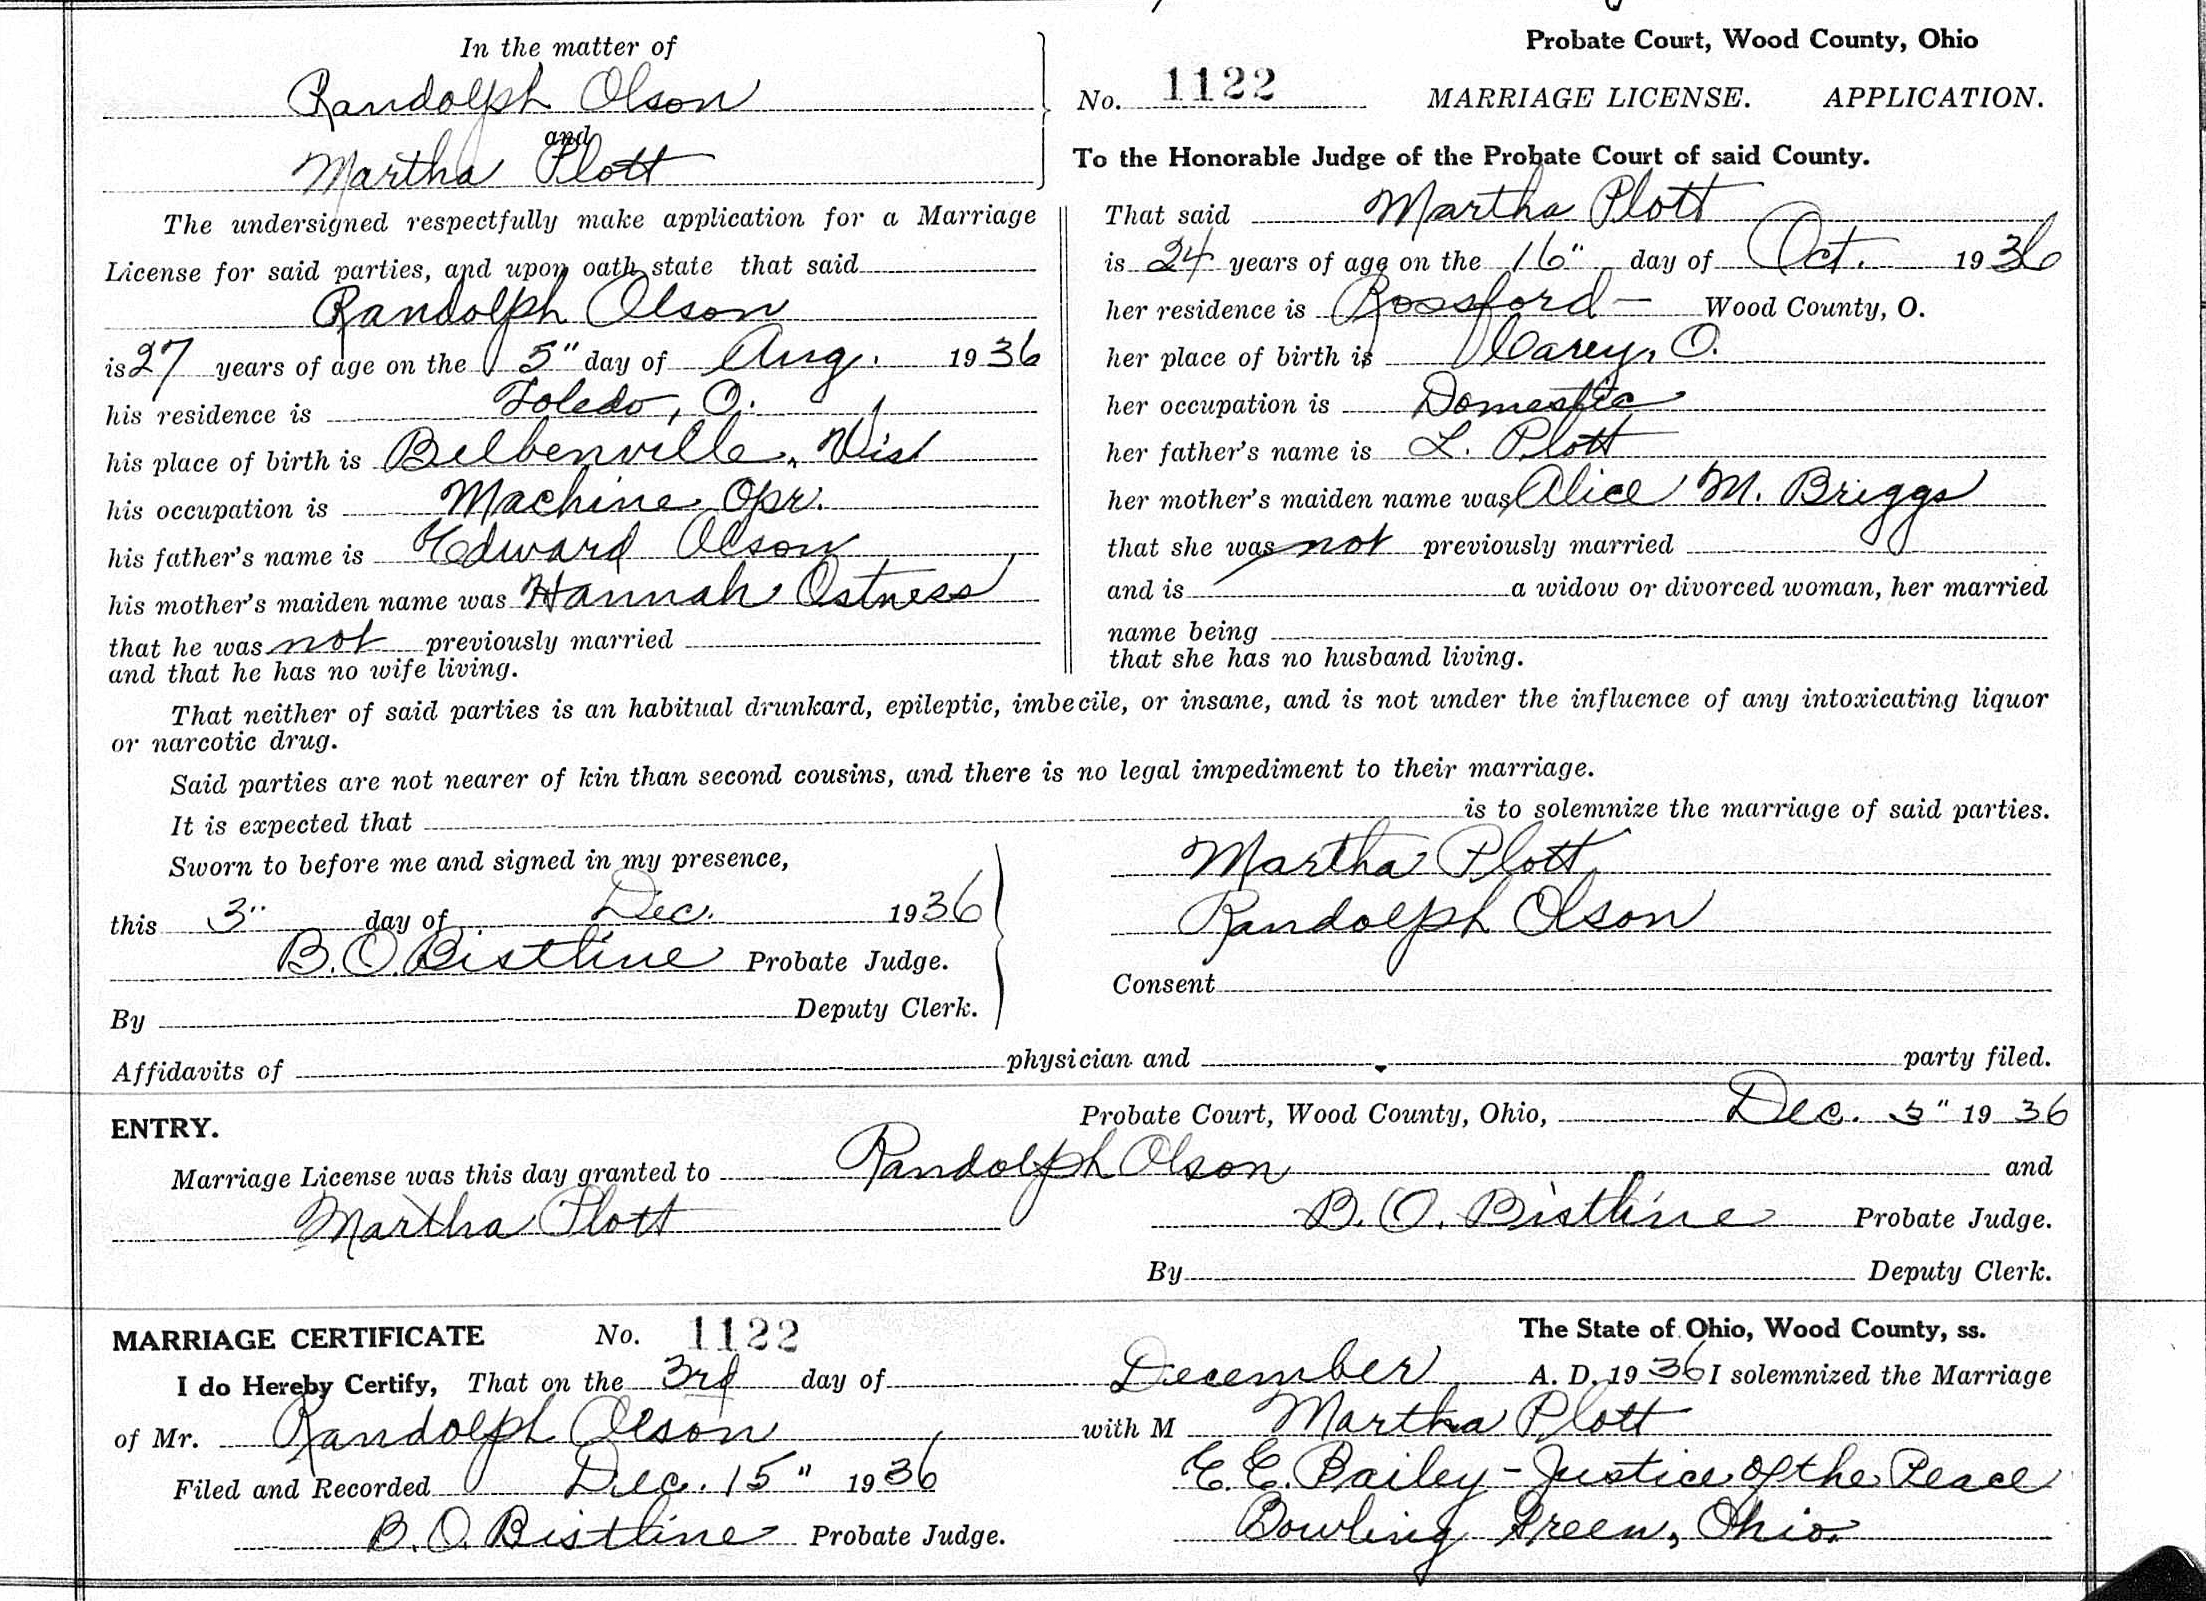 In the matter of
Randolph Olson
and
Martha Plott
Probate Court, Wood County, Ohio
No. 1122 MARRIAGE LICENSE. APPLICATION.
To the Honorable Judge of the Probate Court of said County.
The undersigned respectfully make application for a Marriage
License for said parties, and upon oath state that said
Randolph Olson
is 27 years of age on the 5" day of Aug. 1936
his residence is Toledo, O.
his place of birth is Belbenville, Wis
his occupation is Machine Opr.
his father's name is Edward Olson
his mother's maiden name was Hannah Ostness
that he was not previously married
and that he has no wife living.
That said Martha Plott
is 24 years of age on the 16" day of Oct. 1936
her residence is Rossford — Wood County, O.
her place of birth is Carey, O.
her occupation is Domestic
her father's name is L. Plott
her mother's maiden name was Alice M. Briggs
that she was not previously married
and is a widow or divorced woman, her married
name being
that she has no husband living.
That neither of said parties is an habitual drunkard, epileptic, imbecile, or insane, and is not under the influence of any intoxicating liquor
or narcotic drug.
Said parties are not nearer of kin than second cousins, and there is no legal impediment to their marriage.
It is expected that is to solemnize the marriage of said parties.
Sworn to before me and signed in my presence,
this 3" day of Dec. 1936
B. O. Bistline Probate Judge.
By Deputy Clerk.
Martha Plott
Randolph Olson
Consent
Affidavits of physician and party filed.
ENTRY. Probate Court, Wood County, Ohio, Dec. 3" 1936
Marriage License was this day granted to Randolph Olson and
Martha Plott B. O. Bistline Probate Judge.
By Deputy Clerk.
MARRIAGE CERTIFICATE No. 1122 The State of Ohio, Wood County, ss.
I do Hereby Certify, That on the 3rd day of December A. D. 1936 I solemnized the Marriage
of Mr. Randolph Olson with M Martha Plott
Filed and Recorded Dec. 15" 1936 E. E. Bailey - Justice of the Peace
B. O. Bistline Probate Judge. Bowling Green, Ohio.